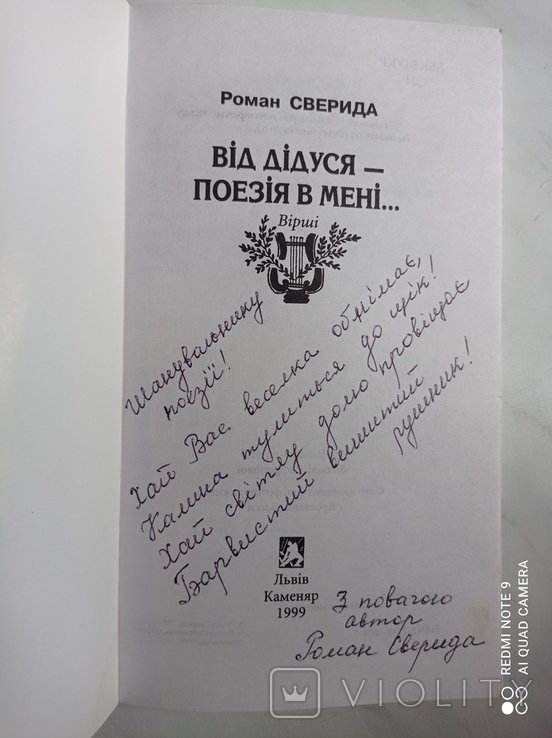 Роман СВЕРИДА
ВІД ДІДУСЯ –
ПОЕЗІЯ В МЕНІ...
Вірші
Шанувальнику
поезії!
Хай Вас веселка обнімає,
Калина тулиться до щік!
Хай світлу долю провіщає
Барвистий вишитий
рушник!
Львів
Каменяр
1999
З повагою
автор
Роман Сверида
VIOLITY
REDMI NOTE 9
AI QUAD CAMERA